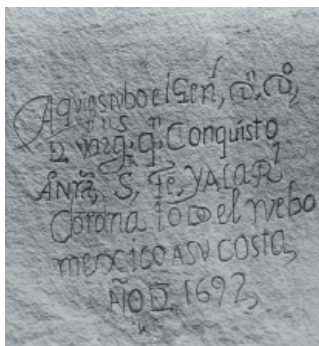 Aqui estubo el Gen, Dn, Do,
D Vargs, qn, Conquisto
A Nra, S, Fe, Y A LA Rl
Corona todo el nvebo
mexico A SV COSTA,
AÑO D 1692,